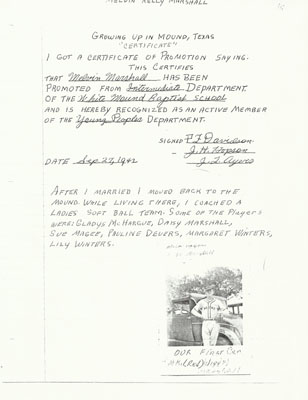 MELVIN KELLY MARSHALL
GROWING UP IN MOUND, TEXAS
"CERTIFICATE"
I GOT A CERTIFICATE OF PROMOTION SAYING.
THIS CERTIFIES
THAT Melvin Marshall HAS BEEN
PROMOTED FROM Intermediate DEPARTMENT
OF THE White Mound Baptist School
AND IS HEREBY RECOGNIZED AS AN ACTIVE MEMBER
OF THE Young Peoples DEPARTMENT.
SIGNED P.J. Davidson
J.H. Hopson
DATE Sep 27, 1942 J.J. Ayers
AFTER I MARRIED I MOVED BACK TO THE
MOUND. WHILE LIVING THERE, I COACHED A
LADIES SOFT BALL TEAM. SOME OF THE PLAYERS
WERE: GLADYS McHARGUE, DAISY MARSHALL,
SUE MAGEE, PAULINE DEVERS, MARGARET WINTERS,
LILY WINTERS.
Marshall
OUR FIRST CAR